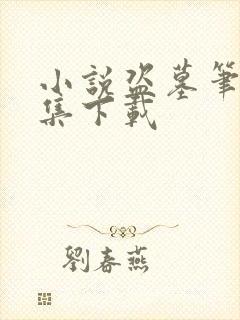 小說盜墓筆
集下載
劉春燕